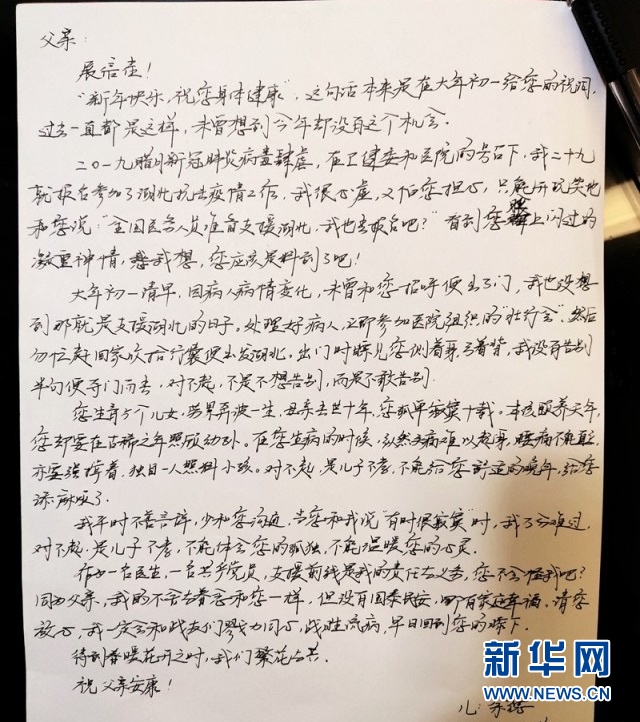 父亲：
展信佳！
“新年快乐，祝您身体健康”，这句话本来是在大年初一给您的祝词，
过去一直都是这样，未曾想到今年却没有这个机会。
二〇一九腊月新冠肺炎病毒肆虐，在卫健委和医院的号召下，我二十九
就报名参加了湖北抗击疫情工作，我很心虚，又怕您担心，只能开玩笑地
和您说：“全国医务人员准备支援湖北，我也去报名吧？”看到您脸上闪过的
凝重神情，我想，您应该是料到了吧！
大年初一清早，因病人病情变化，未曾和您招呼便出了门，我也没想
到那就是支援湖北的日子。处理好病人，立即参加医院组织的“壮行会”，然后
匆忙赶回家收拾行囊便出发湖北。出门时瞟见您侧着身弓着背，我没有告别
半句便夺门而去，对不起，不是不想告别，而是不敢告别。
您生育5个儿女，劳累奔波一生，母亲去世十年，您孤单寂寞十载。本该颐养天年，
您却要在古稀之年照顾幼孙。在您生病的时候，纵然头痛难以起身，腰痛不能直立，
亦要强撑着，独自一人照料小孩。对不起，是儿子不孝，不能给您舒适的晚年，给您
添麻烦了。
我平时不善言辞，少和您沟通，当您和我说“有时很寂寞”时，我十分难过，
对不起，是儿子不孝，不能体会您的孤独，不能温暖您的心灵。
作为一名医生，一名共产党员，支援前线是我的责任与义务，您不会怪我吧？
同为父亲，我的不舍与眷念和您一样，但没有国泰民安，哪有家庭幸福。请您
放心，我一定会和战友们戮力同心，战胜流病，早日回到您的膝下。
待到春暖花开之时，我们繁花与共。
祝父亲安康！
儿：
新华网
WWW.NEWS.CN